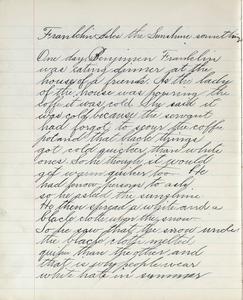 Franklin Asks the Sunshine something
One day Benjimen Franklin
was eating dinner at the
house of a friend. As the lady
of the house was pouring the
coffe it was cold. She said it
was cold because the servant
had forgot to scour the coffe
pot and that black things
got cold quicker than white
ones. So he thought it would
get warm quicker too. He
had know person to ask,
so he asked the sunshine
He then spread a white and a
black cloth upon the snow.
So he saw that the snow under
the black cloth melted
quicker than the other and
that is why people wear
white hats in summer